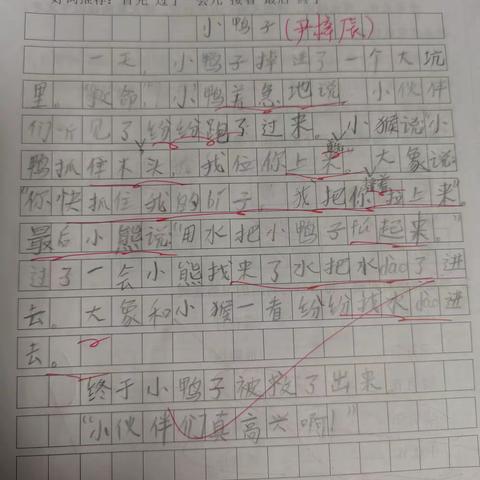 好词推荐：首先 过了一会儿 接着 最后 终于
小鸭子(尹梓辰)
一天，小鸭子掉进了一个大坑
里。"救命"小鸭着急地说。小伙伴
们听见了纷纷跑了过来。小猴说"小
鸭抓住木头，我拉你上来。"大象说
"你快抓住我的bí子，我把你拉上来"
最后小熊说"用水把小鸭子fú起来。"
过了一会小熊找来了水把水dào了进
去。大象和小猴一看纷纷找水dào进
去。
终于小鸭子被救了出来
"小伙伴们真高兴啊！"